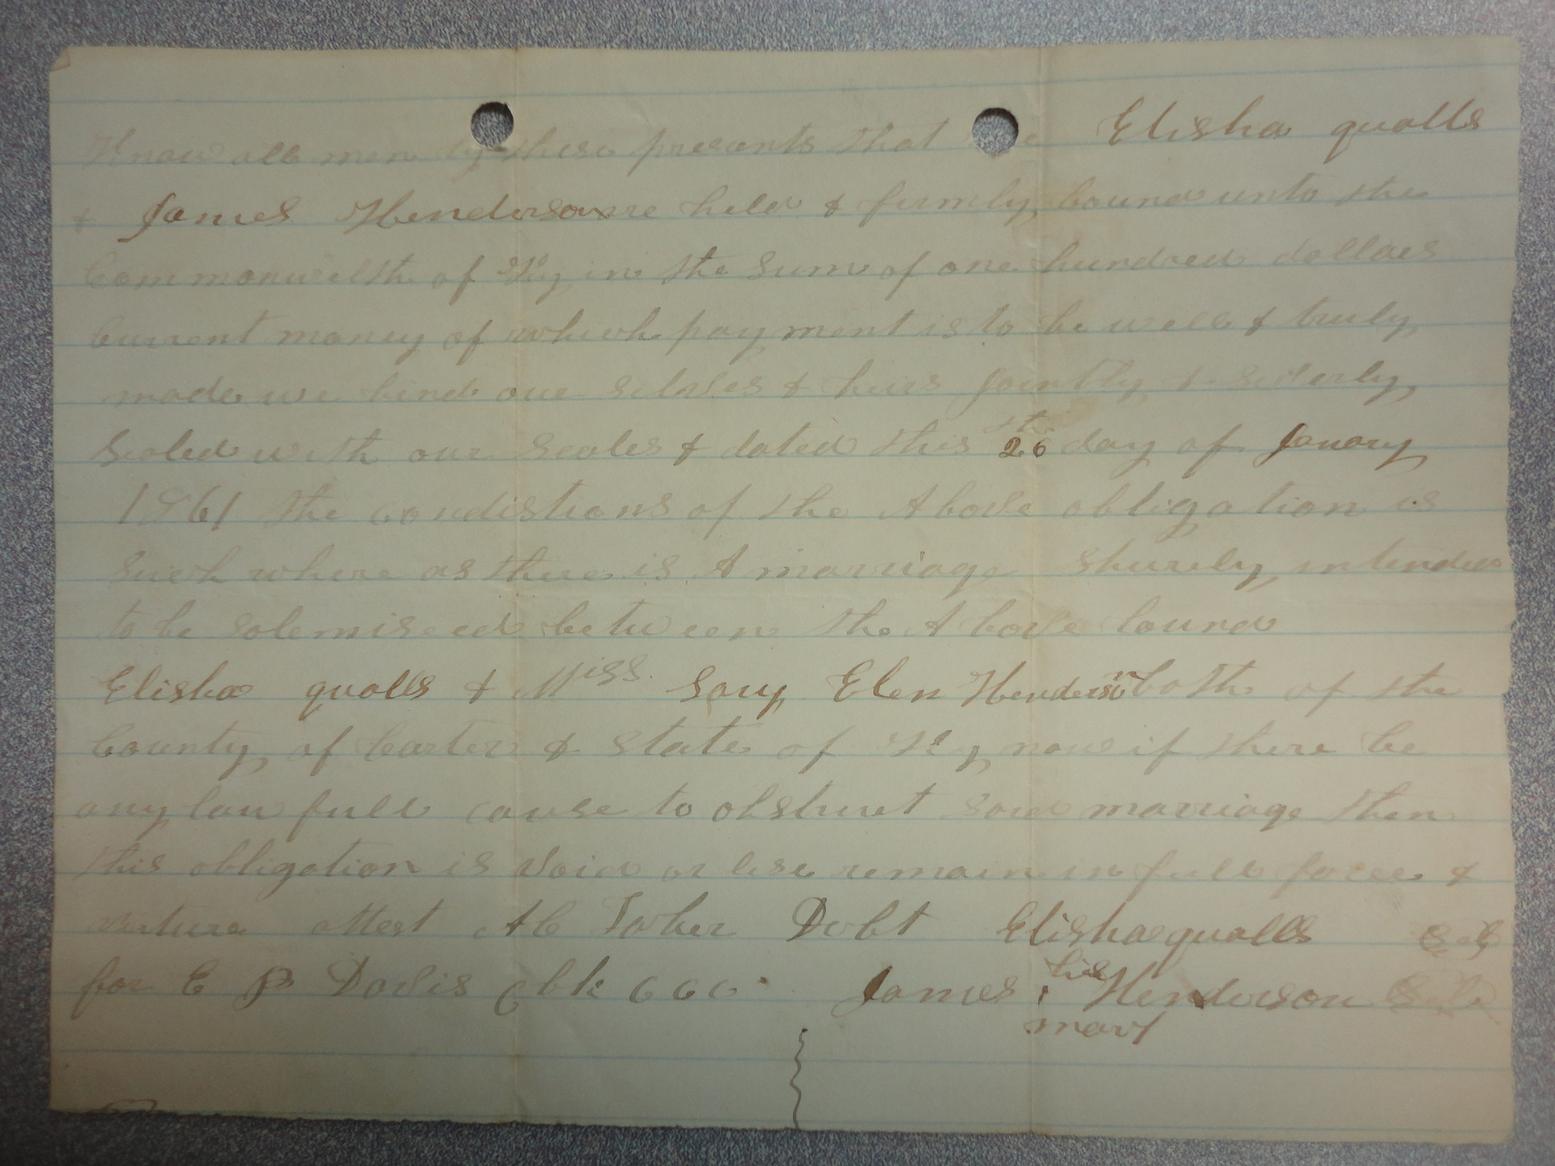 Know all men by these presents that we Elisha qualls
& James Henderson are held & firmly bound unto the
Commonwelth of Ky in the sum of one hundred dollars
Current money of which payment is to be well & truly
made we bind our selves & heirs jointly & severly
Sealed with our Seales & dated this 26th day of Jenuary
1861 the condistions of the Above obligation is
Such where as there is A marriage shurely intended
to be solemiseed between the Above bound
Elisha qualls & Miss Sary Elen Henderson both of the
County of Carter & State of Ky now if there be
any law full cause to obstruct said marriage then
this obligation is void or else remain in full force &
virture Attest Dobt Elisha qualls
for E B Davis Clk CCC James his Henderson
mark